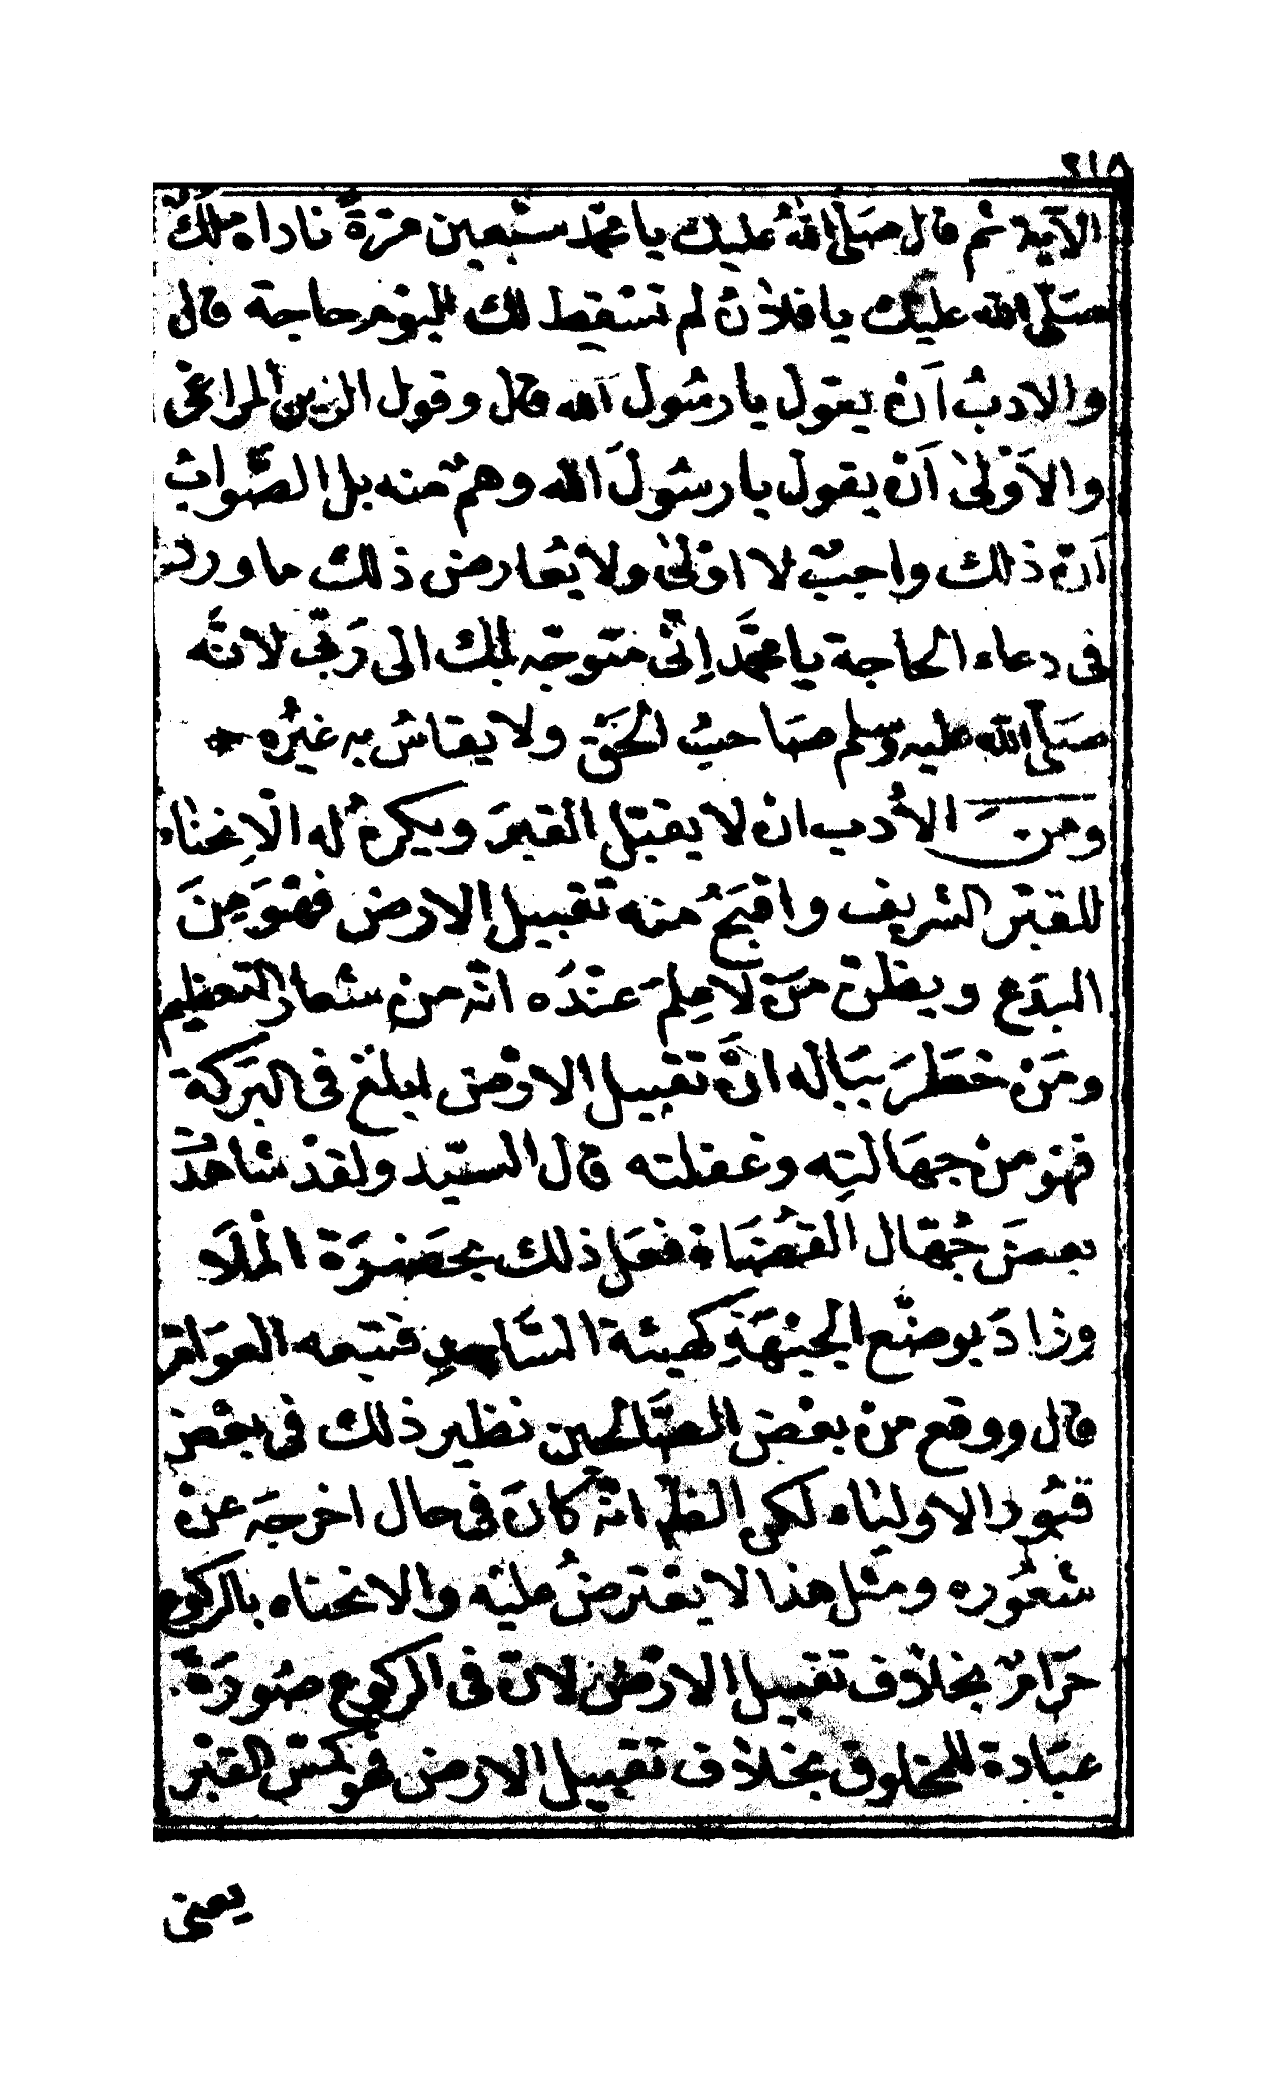 ٢١٨
الآية ثم قال صَلى اللهُ عليك يا محمّد سَبْعين مَرّةً ناداه ملَكٌ
صَلّى الله عليك يا فلانُ لم تسْقط لك اليوْم حاجة قال
والادبُ اَنْ يقول يا رسُول الله قال وقول الزين المراغى
والاَوْلىٰ اَنْ يقول يا رسُولَ الله وهمٌ منه بل الصَّوابُ
اَنّ ذلك واجبٌ لا اوْلىٰ ولا يُعَارض ذلك ما ورد
فى دعاء الحاجة يا محمَّد اِنّى متوجّه بك الى رَبّى لانّه
صَلّى الله عليه وسلم صَاحبُ الحَقّ ولا يقاسُ به غيرُه
ومنَ الأدب انْ لا يقبّل القبرَ ويكرهُ له الاِنحناء
للقبْر الشريف واقبَحُ منه تقبيل الارض فهْوَ مِنَ
البدَع ويظنّ مَنْ لا عِلمَ عنْدَه انّه منْ شعار التعظيم
ومَنْ خطَرَ ببَاله انَّ تقبيل الارْض ابلغ فى البَركة
فهْو منْ جهَالتِه وغفلته قال السيّد ولقدْ شاهدْتُ
بعضَ جُهّال القُضَاة فعَل ذلك بحضرَة المَلَاء
وزادَ بوضْع الجبْهَةِ كهيئة السَّاجدِ فتبعه العوَامّ
قال ووقع منْ بعْض الصَّالحين نظير ذلك فى بعْض
قبُور الاوليَاء لكن الظنّ انّه كانَ فى حال اخرجَه عنْ
شعُوره ومثل هذا لا يعْترضُ عليْه والانحناء بالركوع
حَرَامٌ بخلاف تقبيل الارْض لانّ فى الركوع صُورَةَ
عبَادة للمخلوق بخلاف تقبيل الارض فهُو كمسّ القبْر
يعنى